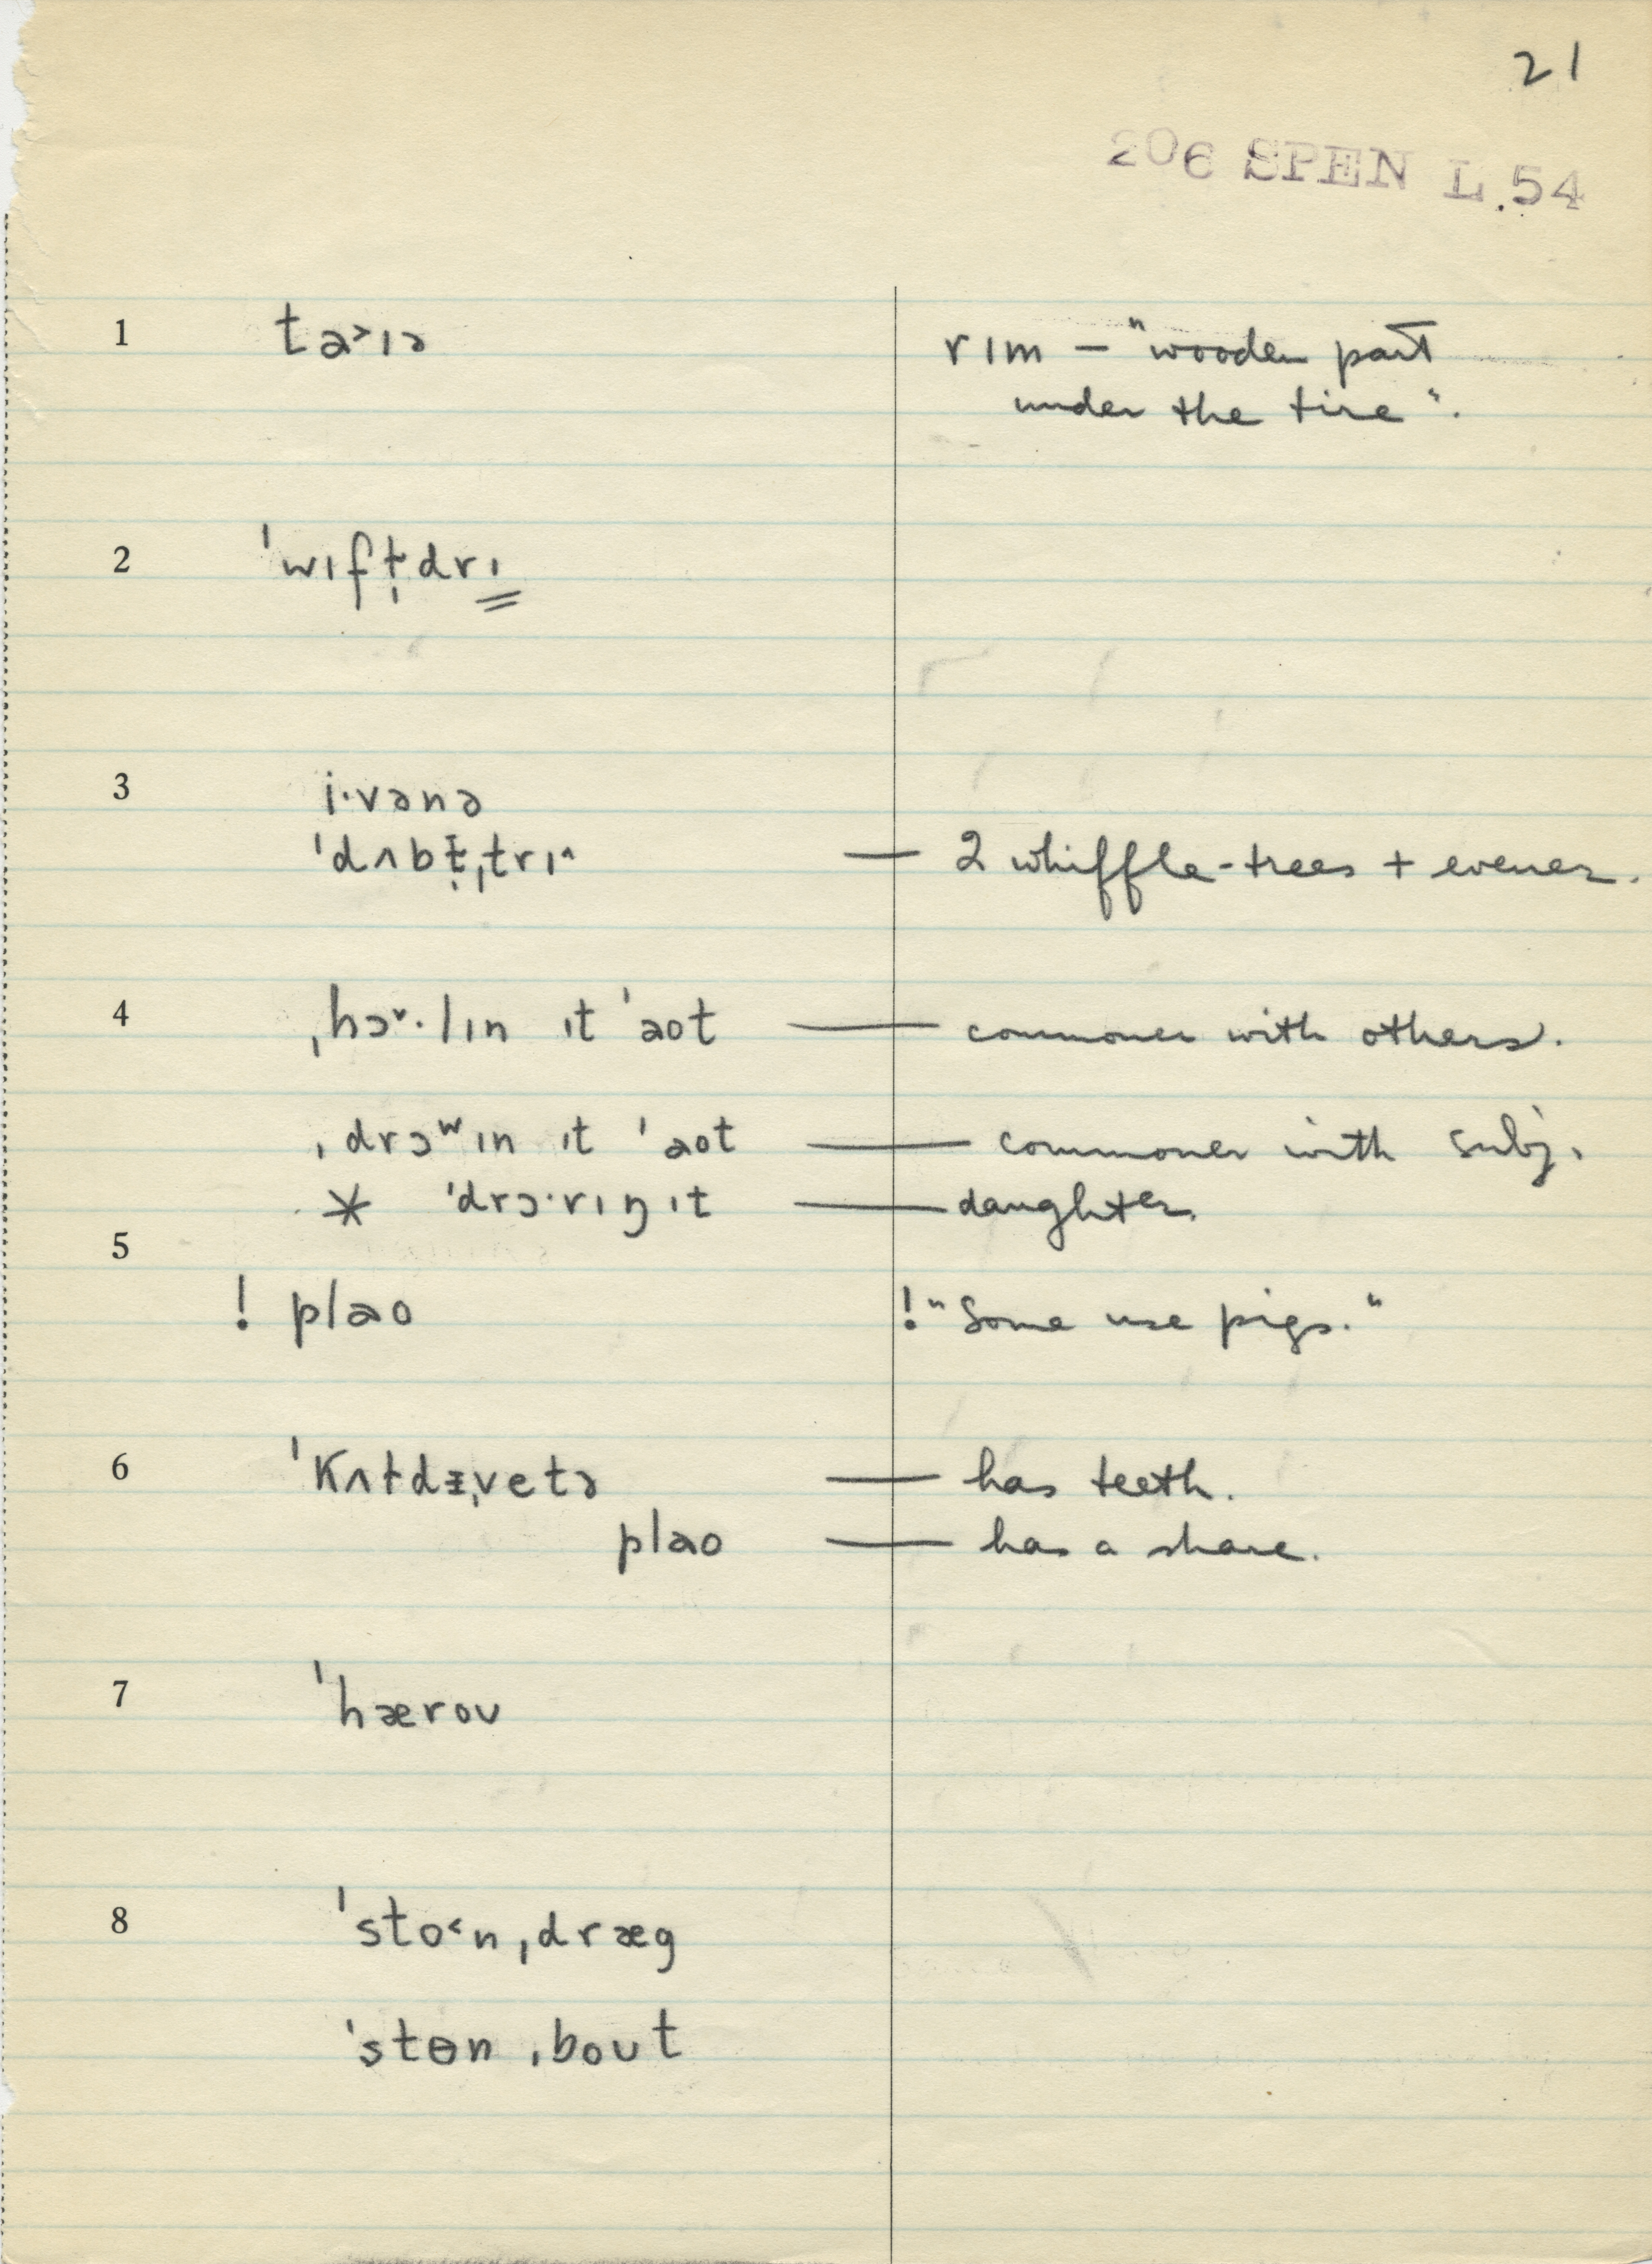 21
206 SPEN L.54
1 ta˃ɪə rɪm – "wooden part
under the tire".
2 ˈwɪfɫ̩drɪ
3 i·vənə
ˈdʌbɫ̩ˌtrɪ˄ — 2 whiffle-trees + evener.
4 ˌhɔ˅·lɪn ɪt ˈaot — commoner with others.
ˌdrɔʷɪn ɪt ˈaot — commoner with subj.
* ˈdrɔ·rɪŋ ɪt — daughter
5
! plao !"Some use pigs."
6 ˈkʌɫdᵻˌvetə — has teeth.
plao — has a share.
7 ˈhæroʊ
8 ˈsto˂nˌdræg
ˈstɵn ˌboʊt